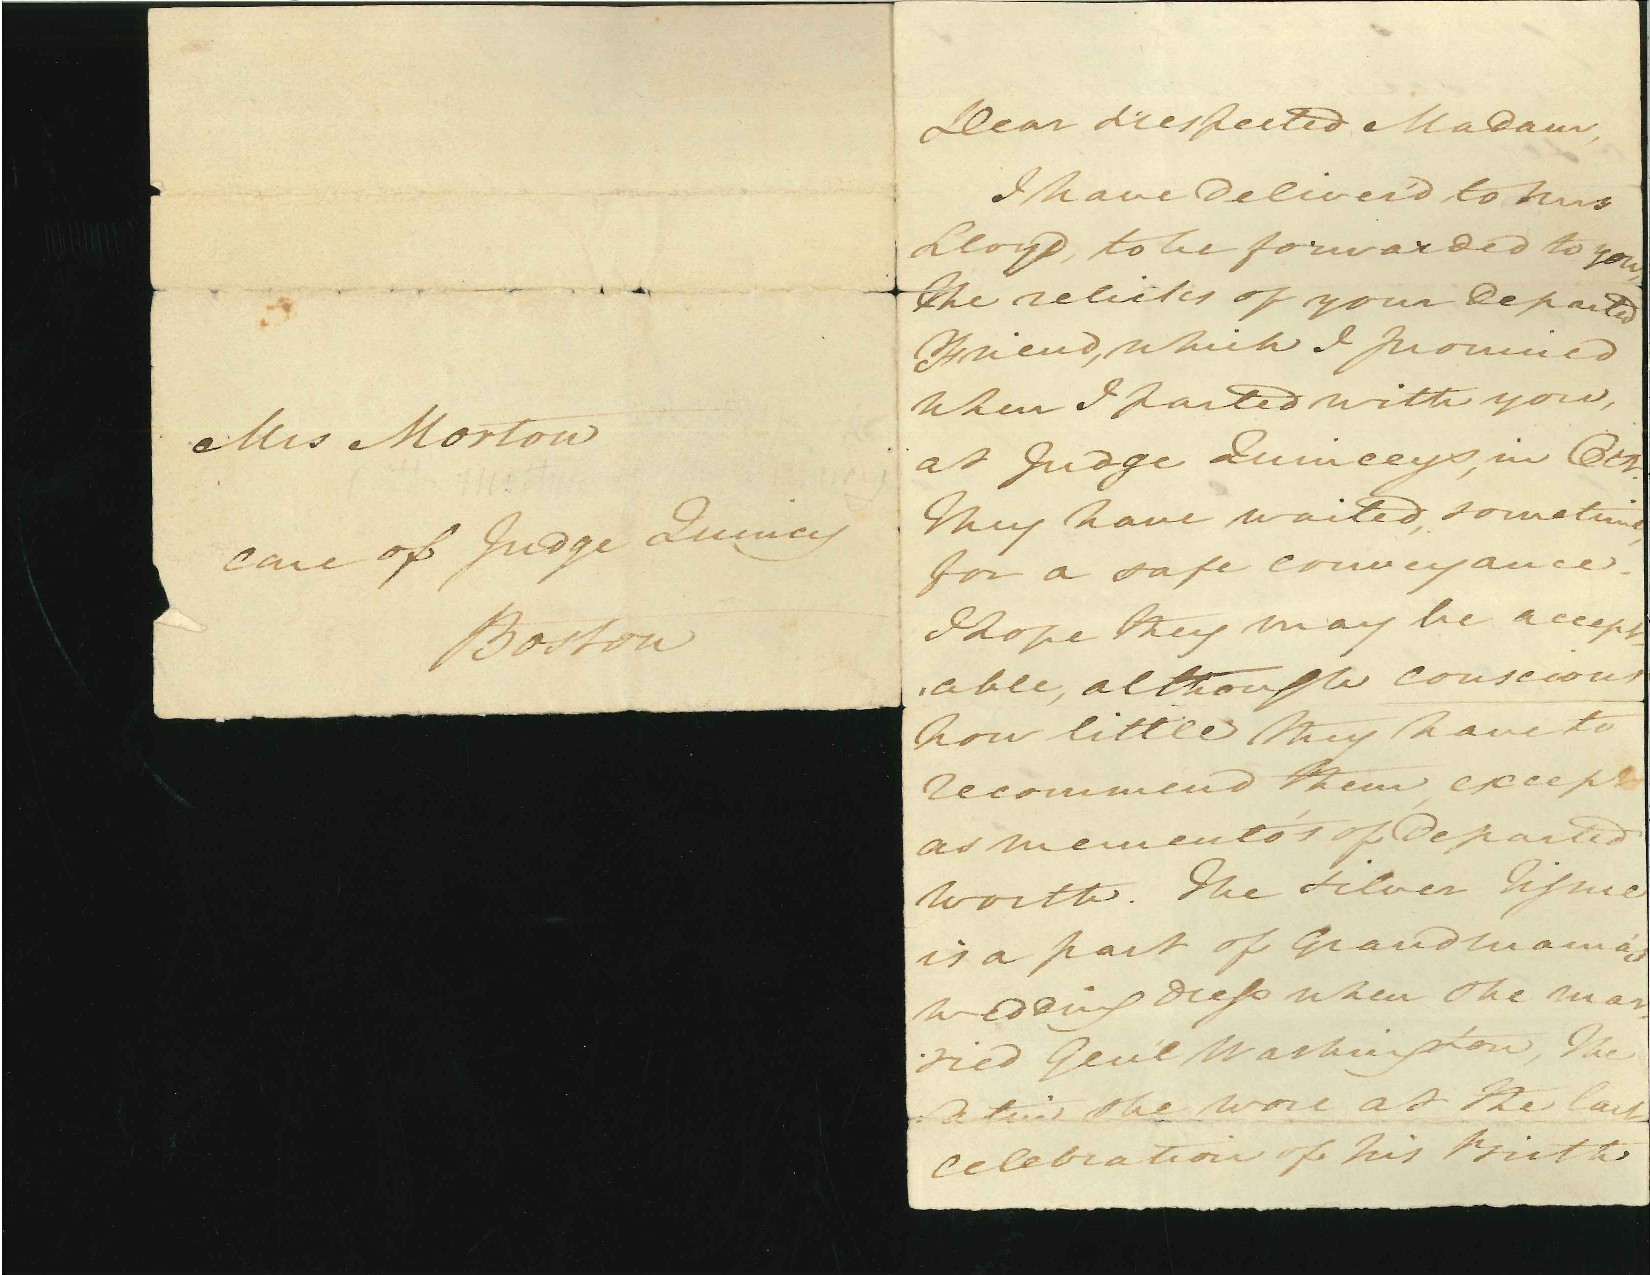 Mrs Morton
care of Judge Quincy
Boston
Dear & respected Madam,
I have deliver'd to Mrs
Lloyd, to be forwarded to you,
the relicks of your departed
Friend, which I promised
when I parted with you,
at Judge Quinceys, in Oct.
They have waited, sometime,
for a safe conveyance.
I hope they may be accept-
able, although conscious
how little they have to
recommend them, except
as memento's of departed
worth. The silver Tissue
is a part of Grandmama's
wedding dress when she mar-
ried Gen'l Washington, The
Satin she wore at the last
celebration of his Birth